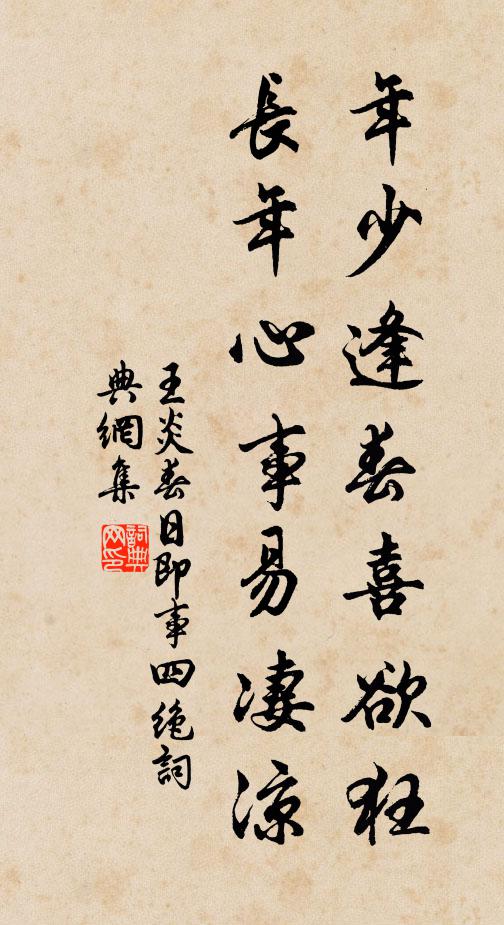 年少逢春喜欲狂
長年心事易凄涼
王炎春日即事四絶詞
典網集
詞典
网印